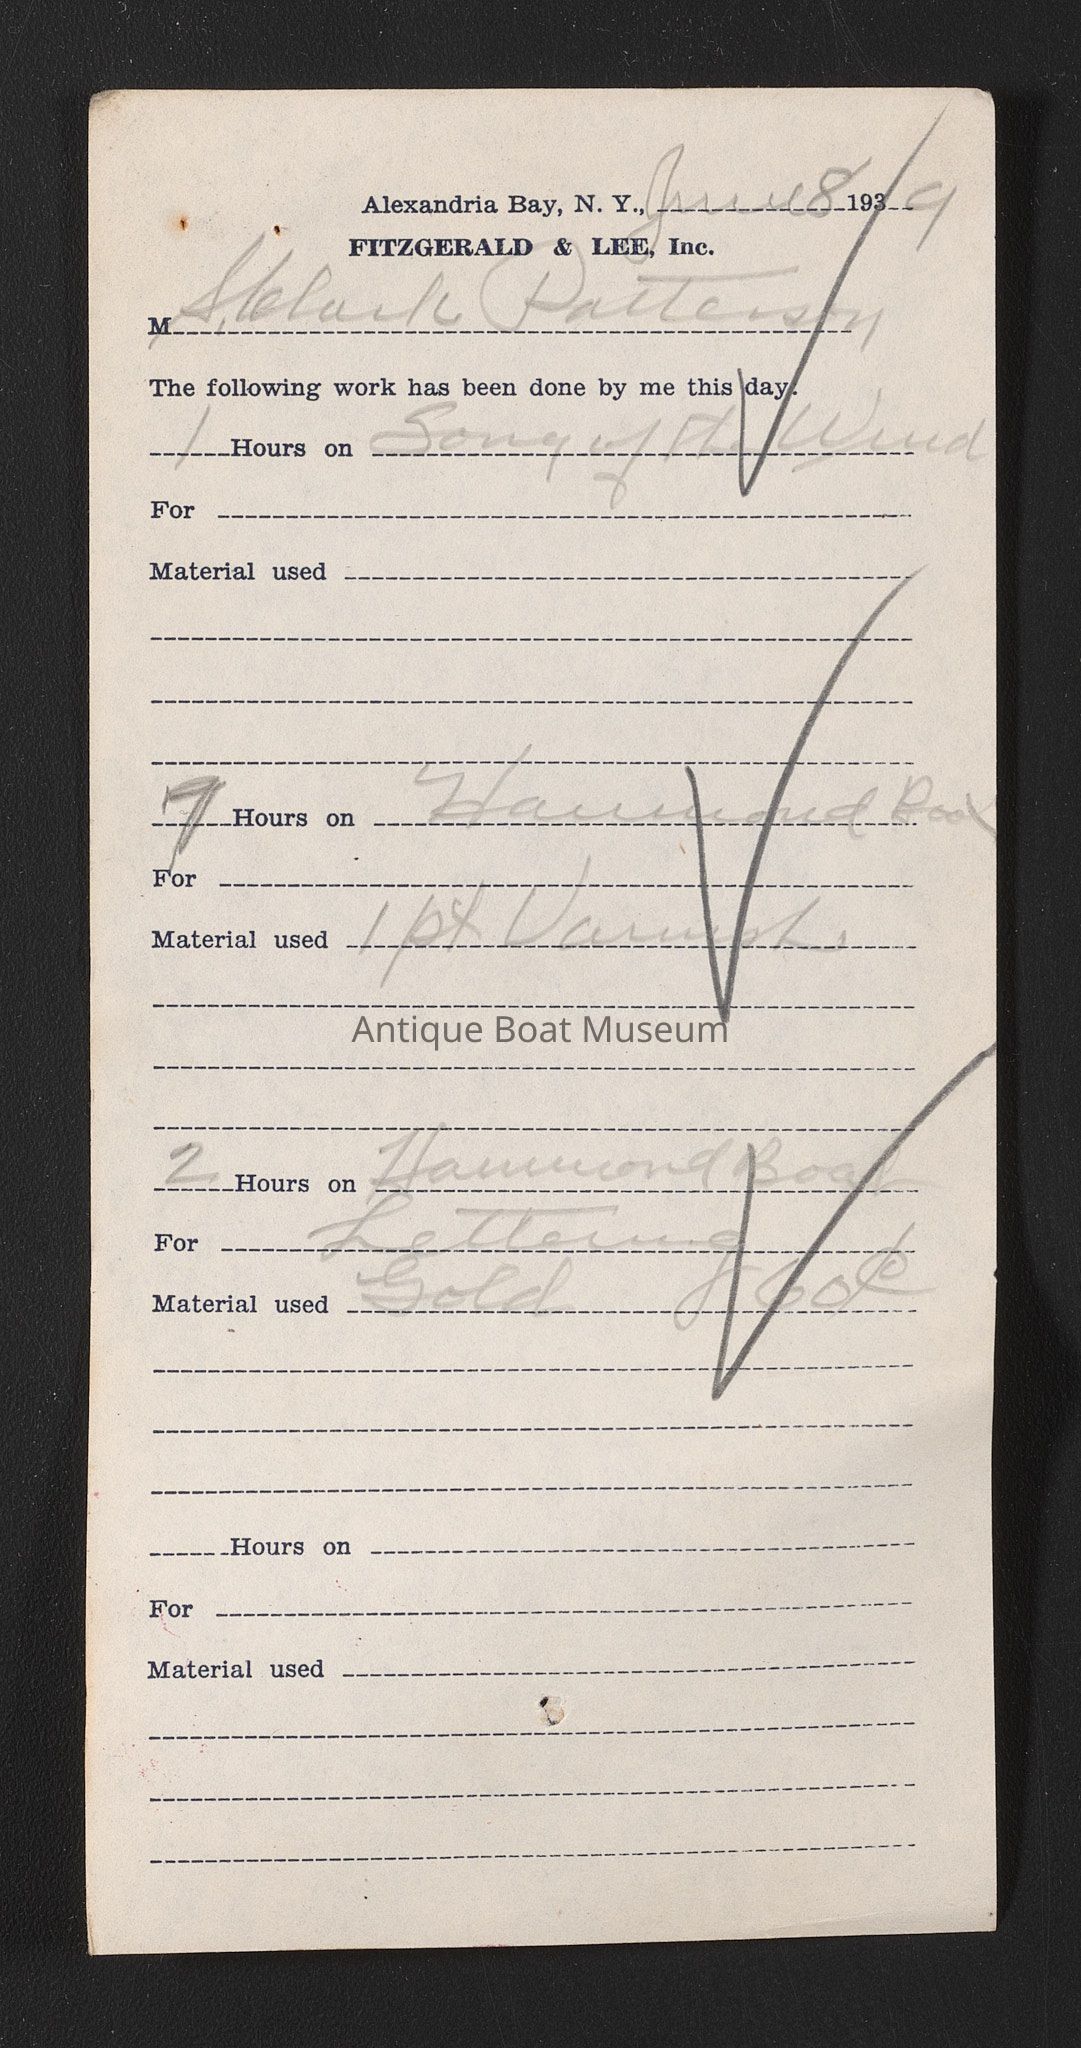 Alexandria Bay, N. Y., June 8 1939
FITZGERALD & LEE, Inc.
M Clark Patterson
The following work has been done by me this day.
1 Hours on Song of the Wind
For
Material used
Hours on Hammond Boat
For
Material used 1 pt Varnish
Antique Boat Museum
2 Hours on Hammond Boat
For Lettering
Material used Gold 60¢
Hours on
For
Material used